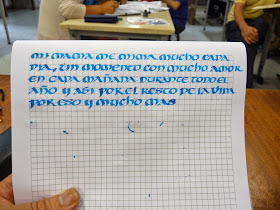 MI MAMA ME MIMA MUCHO CADA
DIA, UN MOMENTO CON MUCHO AMOR
EN CADA MAÑANA DURANTE TODO EL
AÑO Y ASI POR EL RESTO DE LA VIDA
POR ESO Y MUCHO MAS